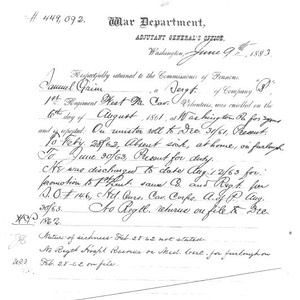 # 449,092.
War Department,
ADJUTANT GENERAL'S OFFICE,
Washington, June 9th, 1883.
Respectfully returned to the Commissioner of Pensions.
Samuel , a Sergt of Company "B",
1st Regiment West Va Cav. Volunteers, was enrolled on the
6th day of August, 1861, at Washington Pa for years
and is reported: On muster roll to Dec 31/61, Present.
To Feby 28/62, Absent sick, at home, on furlough
To June 30/63, Present for duty.
He was discharged to date Aug 2/63 for
promotion to 1st Lieut. same Co. and Regt per
S.O. # 146, Cav. Corps. A. of P. Aug.
30/63. No Regtl. returns on file to Dec
1862.
Nature of sickness Feb. 28-62 not stated.
No Regtl Hospl Records or Med Cert. for furlough on
Feb 28-62 on file.